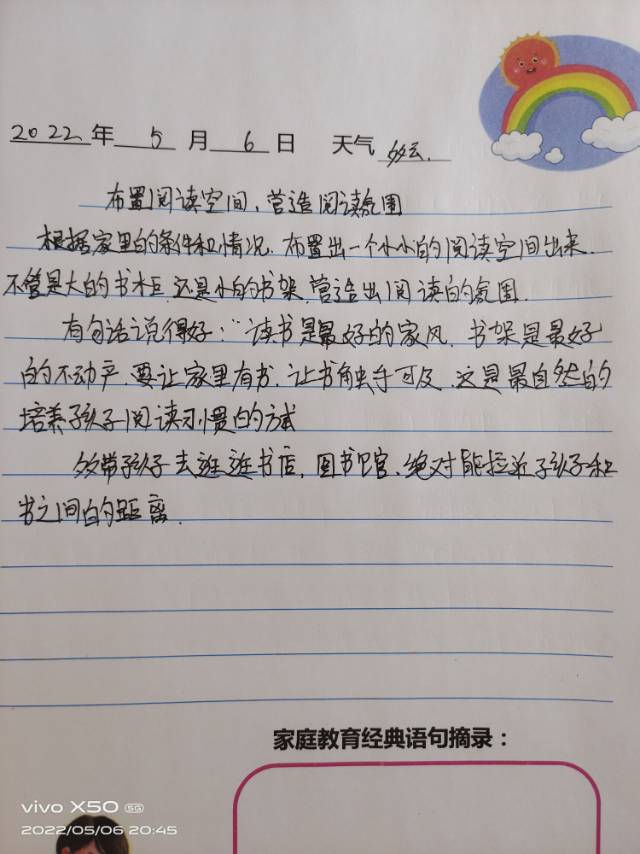 2022年 5 月 6 日 天气 多云.
布置阅读空间,营造阅读氛围
根据家里的条件和情况,布置出一个小小的阅读空间出来.
不管是大的书柜,还是小的书架,营造出阅读的氛围.
有句话说得好:“读书是最好的家风,书架是最好
的不动产,要让家里有书,让书触手可及,这是最自然的
培养孩子阅读习惯的方式
多带孩子去逛逛书店,图书馆,绝对能拉近孩子和
书之间的距离.
家庭教育经典语句摘录:
vivo X50 5G
2022/05/06 20:45